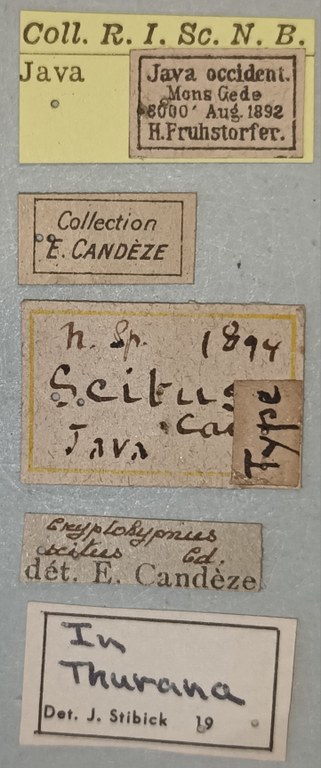 Coll. R. I. Sc. N. B.
Java
Java occident.
Mons Gede
8000' Aug. 1892
H. Fruhstorfer.
Collection
E. CANDÈZE
n. sp. 1894
Scitus
Ca
Java
Type
Cryptohypnus
scitus Cd.
dét. E. Candèze
In
Thurana
Det. J. Stibick 19